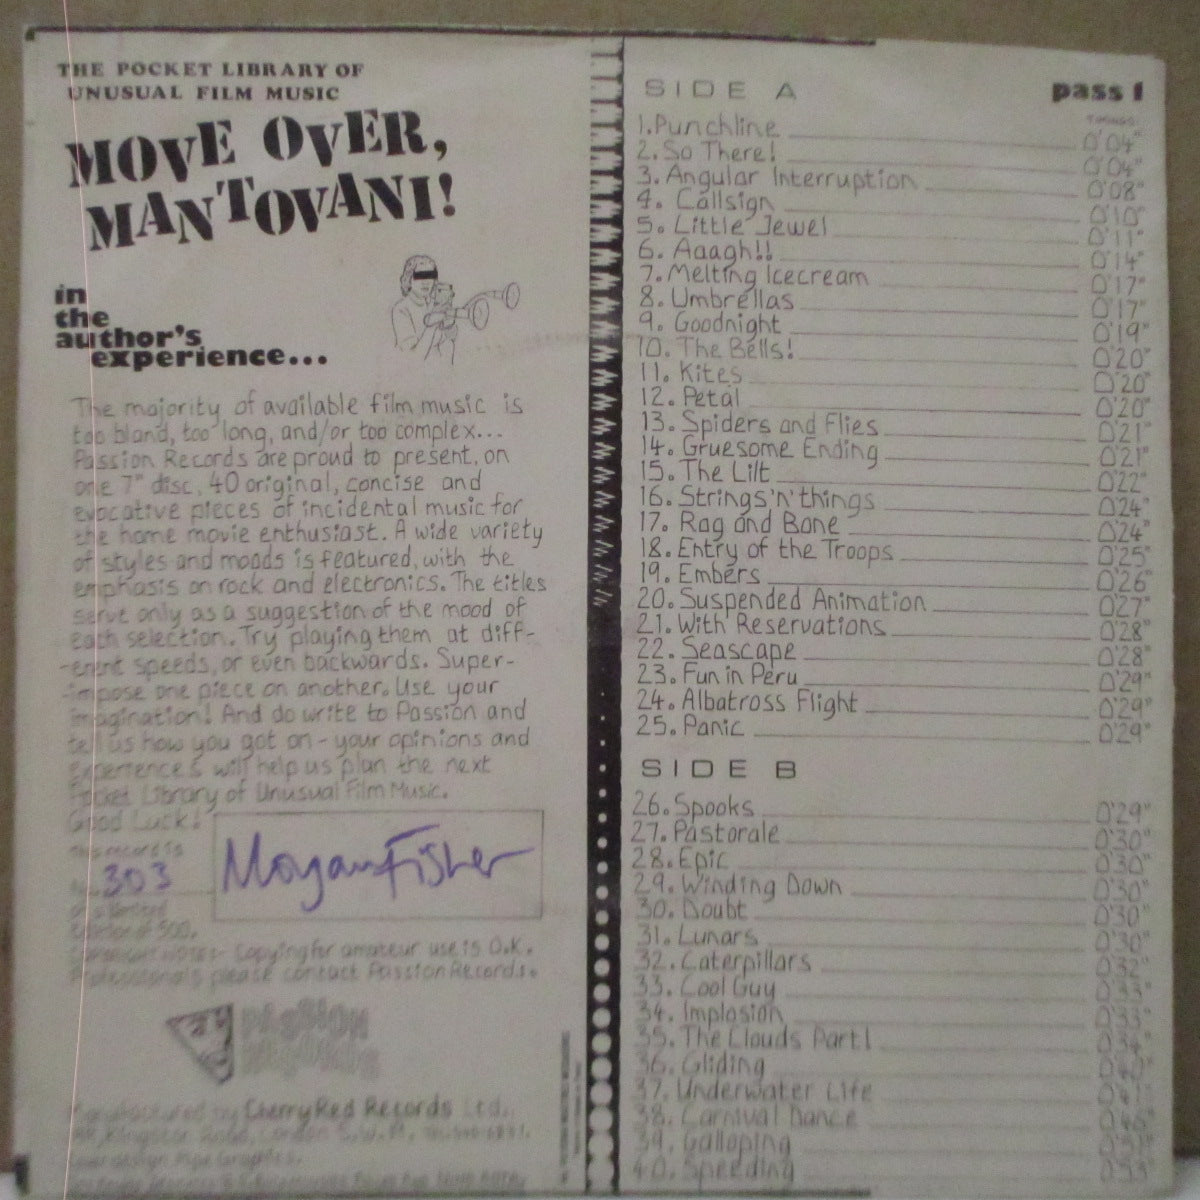 THE POCKET LIBRARY OF
UNUSUAL FILM MUSIC
MOVE OVER,
MANTOVANI!
in
the
author's
experience...
The majority of available film music is
too bland, too long, and/or too complex...
Passion Records are proud to present, on
one 7" disc, 40 original, concise and
evocative pieces of incidental music for
the home movie enthusiast. A wide variety
of styles and moods is featured, with the
emphasis on rock and electronics. The titles
serve only as a suggestion of the mood of
each selection. Try playing them at diff-
-erent speeds, or even backwards. Super-
-impose one piece on another. Use your
imagination! And do write to Passion and
tell us how you got on - your opinions and
experiences will help us plan the next
Pocket Library of Unusual Film Music.
Good Luck!
This record is
303
of a limited
Edition of 500.
Morgan Fisher
COPYRIGHT NOTES - Copying for amateur use is O.K.
Professionals please contact Passion Records.
PASSION
RECORDS
Manufactured by Cherry Red Records Ltd.
SIDE A
pass 1
TIMINGS:
1. Punchline 0'04"
2. So There! 0'04"
3. Angular Interruption 0'08"
4. Callsign 0'10"
5. Little Jewel 0'11"
6. Aaagh!! 0'14"
7. Melting Icecream 0'17"
8. Umbrellas 0'17"
9. Goodnight 0'19"
10. The Bells! 0'20"
11. Kites 0'20"
12. Petal 0'20"
13. Spiders and Flies 0'21"
14. Gruesome Ending 0'21"
15. The Lilt 0'22"
16. Strings 'n' things 0'24"
17. Rag and Bone 0'24"
18. Entry of the Troops 0'25"
19. Embers 0'26"
20. Suspended Animation 0'27"
21. With Reservations 0'28"
22. Seascape 0'28"
23. Fun in Peru 0'29"
24. Albatross Flight 0'29"
25. Panic 0'29"
SIDE B
26. Spooks 0'29"
27. Pastorale 0'30"
28. Epic 0'30"
29. Winding Down 0'30"
30. Doubt 0'30"
31. Lunars 0'30"
32. Caterpillars 0'32"
33. Cool Guy 0'33"
34. Implosion 0'33"
35. The Clouds Part 1 0'34"
36. Gliding 0'40"
37. Underwater Life 0'41"
38. Carnival Dance
39. Galloping
40. Speeding